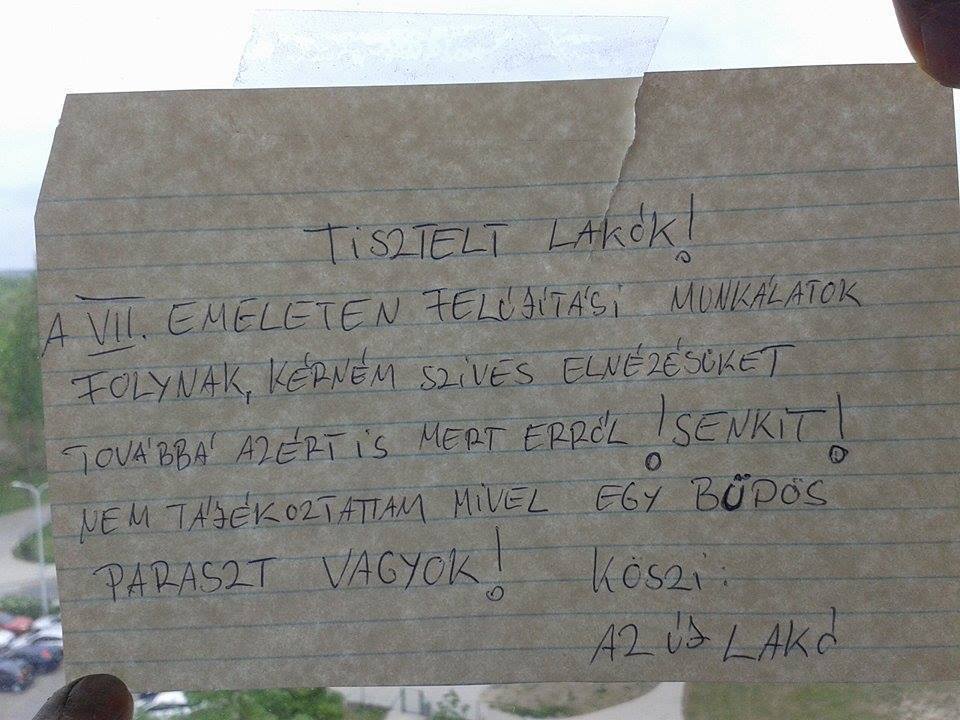 TISZTELT LAKÓK!
A VII. EMELETEN FELÚJÍTÁSI MUNKÁLATOK
FOLYNAK, KÉRNÉM SZÍVES ELNÉZÉSÜKET
TOVÁBBÁ AZÉRT IS MERT ERRŐL !SENKIT!
NEM TÁJÉKOZTATTAM MIVEL EGY BŰDÖS
PARASZT VAGYOK! KÖSZI:
AZ ÚJ LAKÓ